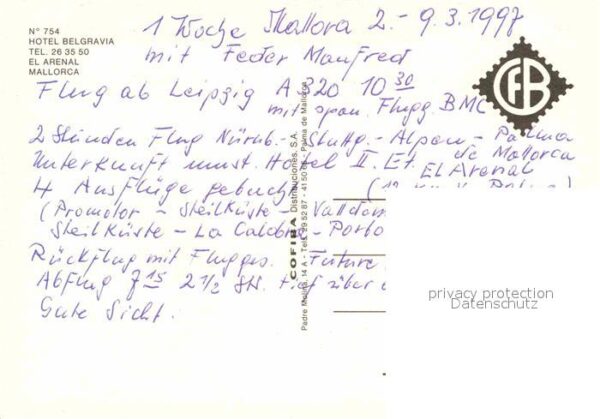 1 Woche Mallora 2.-9.3.1997
Nº 754
HOTEL BELGRAVIA
TEL. 26 35 50
EL ARENAL
MALLORCA
mit Feder Manfred
Flug ab Leipzig A 320 10 30
mit span. Flugg. BMC
2 Stunden Flug Nürnb.- Stuttg.- Alpen - Palma
de Mallorca
Unterkunft unst. Hotel II. Et. El Arenal
4 Ausflüge gebucht
(Promotor - Steilküste - Valldem
Steilküste - La Calobra - Porto
Rückflug mit Flugges. Future
Abflug 7 15 2 1/2 Std. Tief über
Gute Sicht.
CFB
COFIBA Distribuciones, S.A.
Padre Molina, 14 A - Tels. 29 52 87 - 41 50 Palma de Mallorca
privacy protection
Datenschutz